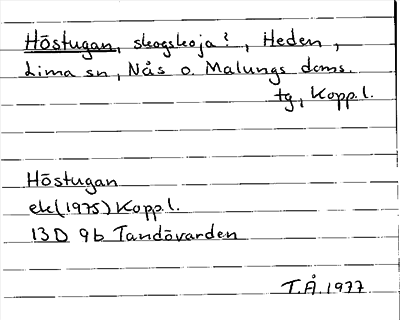 Höstugan, skogskoja?, Heden,
Lima sn, Nås o. Malungs doms.
tg, Kopp.l.
Höstugan
ek(1975) Kopp.l.
13D 9b Tandövarden
T.Å. 1977